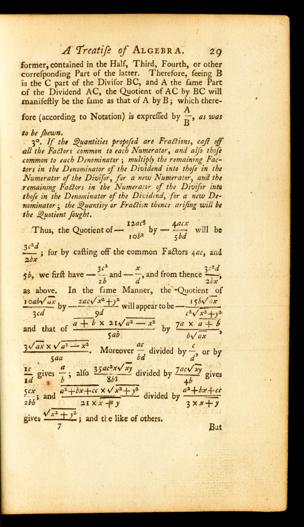 A Treatise of ALGEBRA. 29
former, contained in the Half, Third, Fourth, or other
corresponding Part of the latter. Therefore, seeing B
is the C part of the Divisor BC, and A the same Part
of the Dividend AC, the Quotient of AC by BC will
manifestly be the same as that of A by B; which there-
fore (according to Notation) is expressed by A/B, as was
to be shewn.
3°. If the Quantities proposed are Fractions, cast off
all the Factors common to each Numerator, and also those
common to each Denominator; multiply the remaining Fac-
tors in the Denominator of the Dividend into those in the
Numerator of the Divisor, for a new Numerator, and the
remaining Factors in the Numerator of the Divisor into
those in the Denominator of the Dividend, for a new De-
nominator; the Quantity or Fraction thence arising will be
the Quotient sought.
Thus, the Quotient of — 12ac³/10b² by — 4acx/5bd will be
3c²d/2bx; for by casting off the common Factors 4ac, and
5b, we first have — 3c²/2b and — x/d, and from thence 3c²d/2bx,
as above. In the same Manner, the Quotient of
10ab√ax/3cd by — 2ac√x²+y²/9d will appear to be — 15b√ax/c²√x²+y²,
and that of a + b × 21√a² — x²/5ab by 7a × a + b/b√ax,
3√ax × √a² — x²/5aa. Moreover ac/bd divided by c/d, or by
1c/1d gives a/b; also 35ac²x√xy/8b² divided by 7ac√xy/4b gives
5cx/2b; and a²+bx+cc × √x²+y²/21 × x + y divided by a²+bx+cc/3 × x + y
gives √x² + y²/7; and the like of others.
But